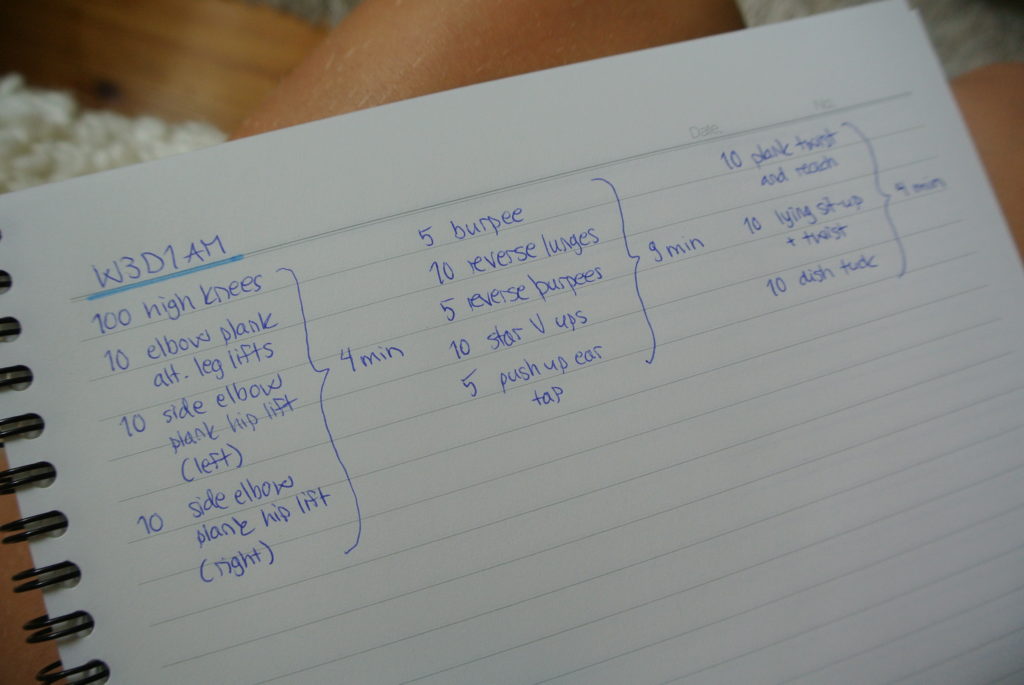 Date.
No.
W3D1AM
100 high knees
10 elbow plank
alt. leg lifts
10 side elbow
plank hip lift
(left)
10 side elbow
plank hip lift
(right)
4 min
5 burpee
10 reverse lunges
5 reverse burpees
10 star V ups
5 push up ear
tap
9 min
10 plank twist
and reach
10 lying sit-up
+ twist
10 dish tuck
4 min